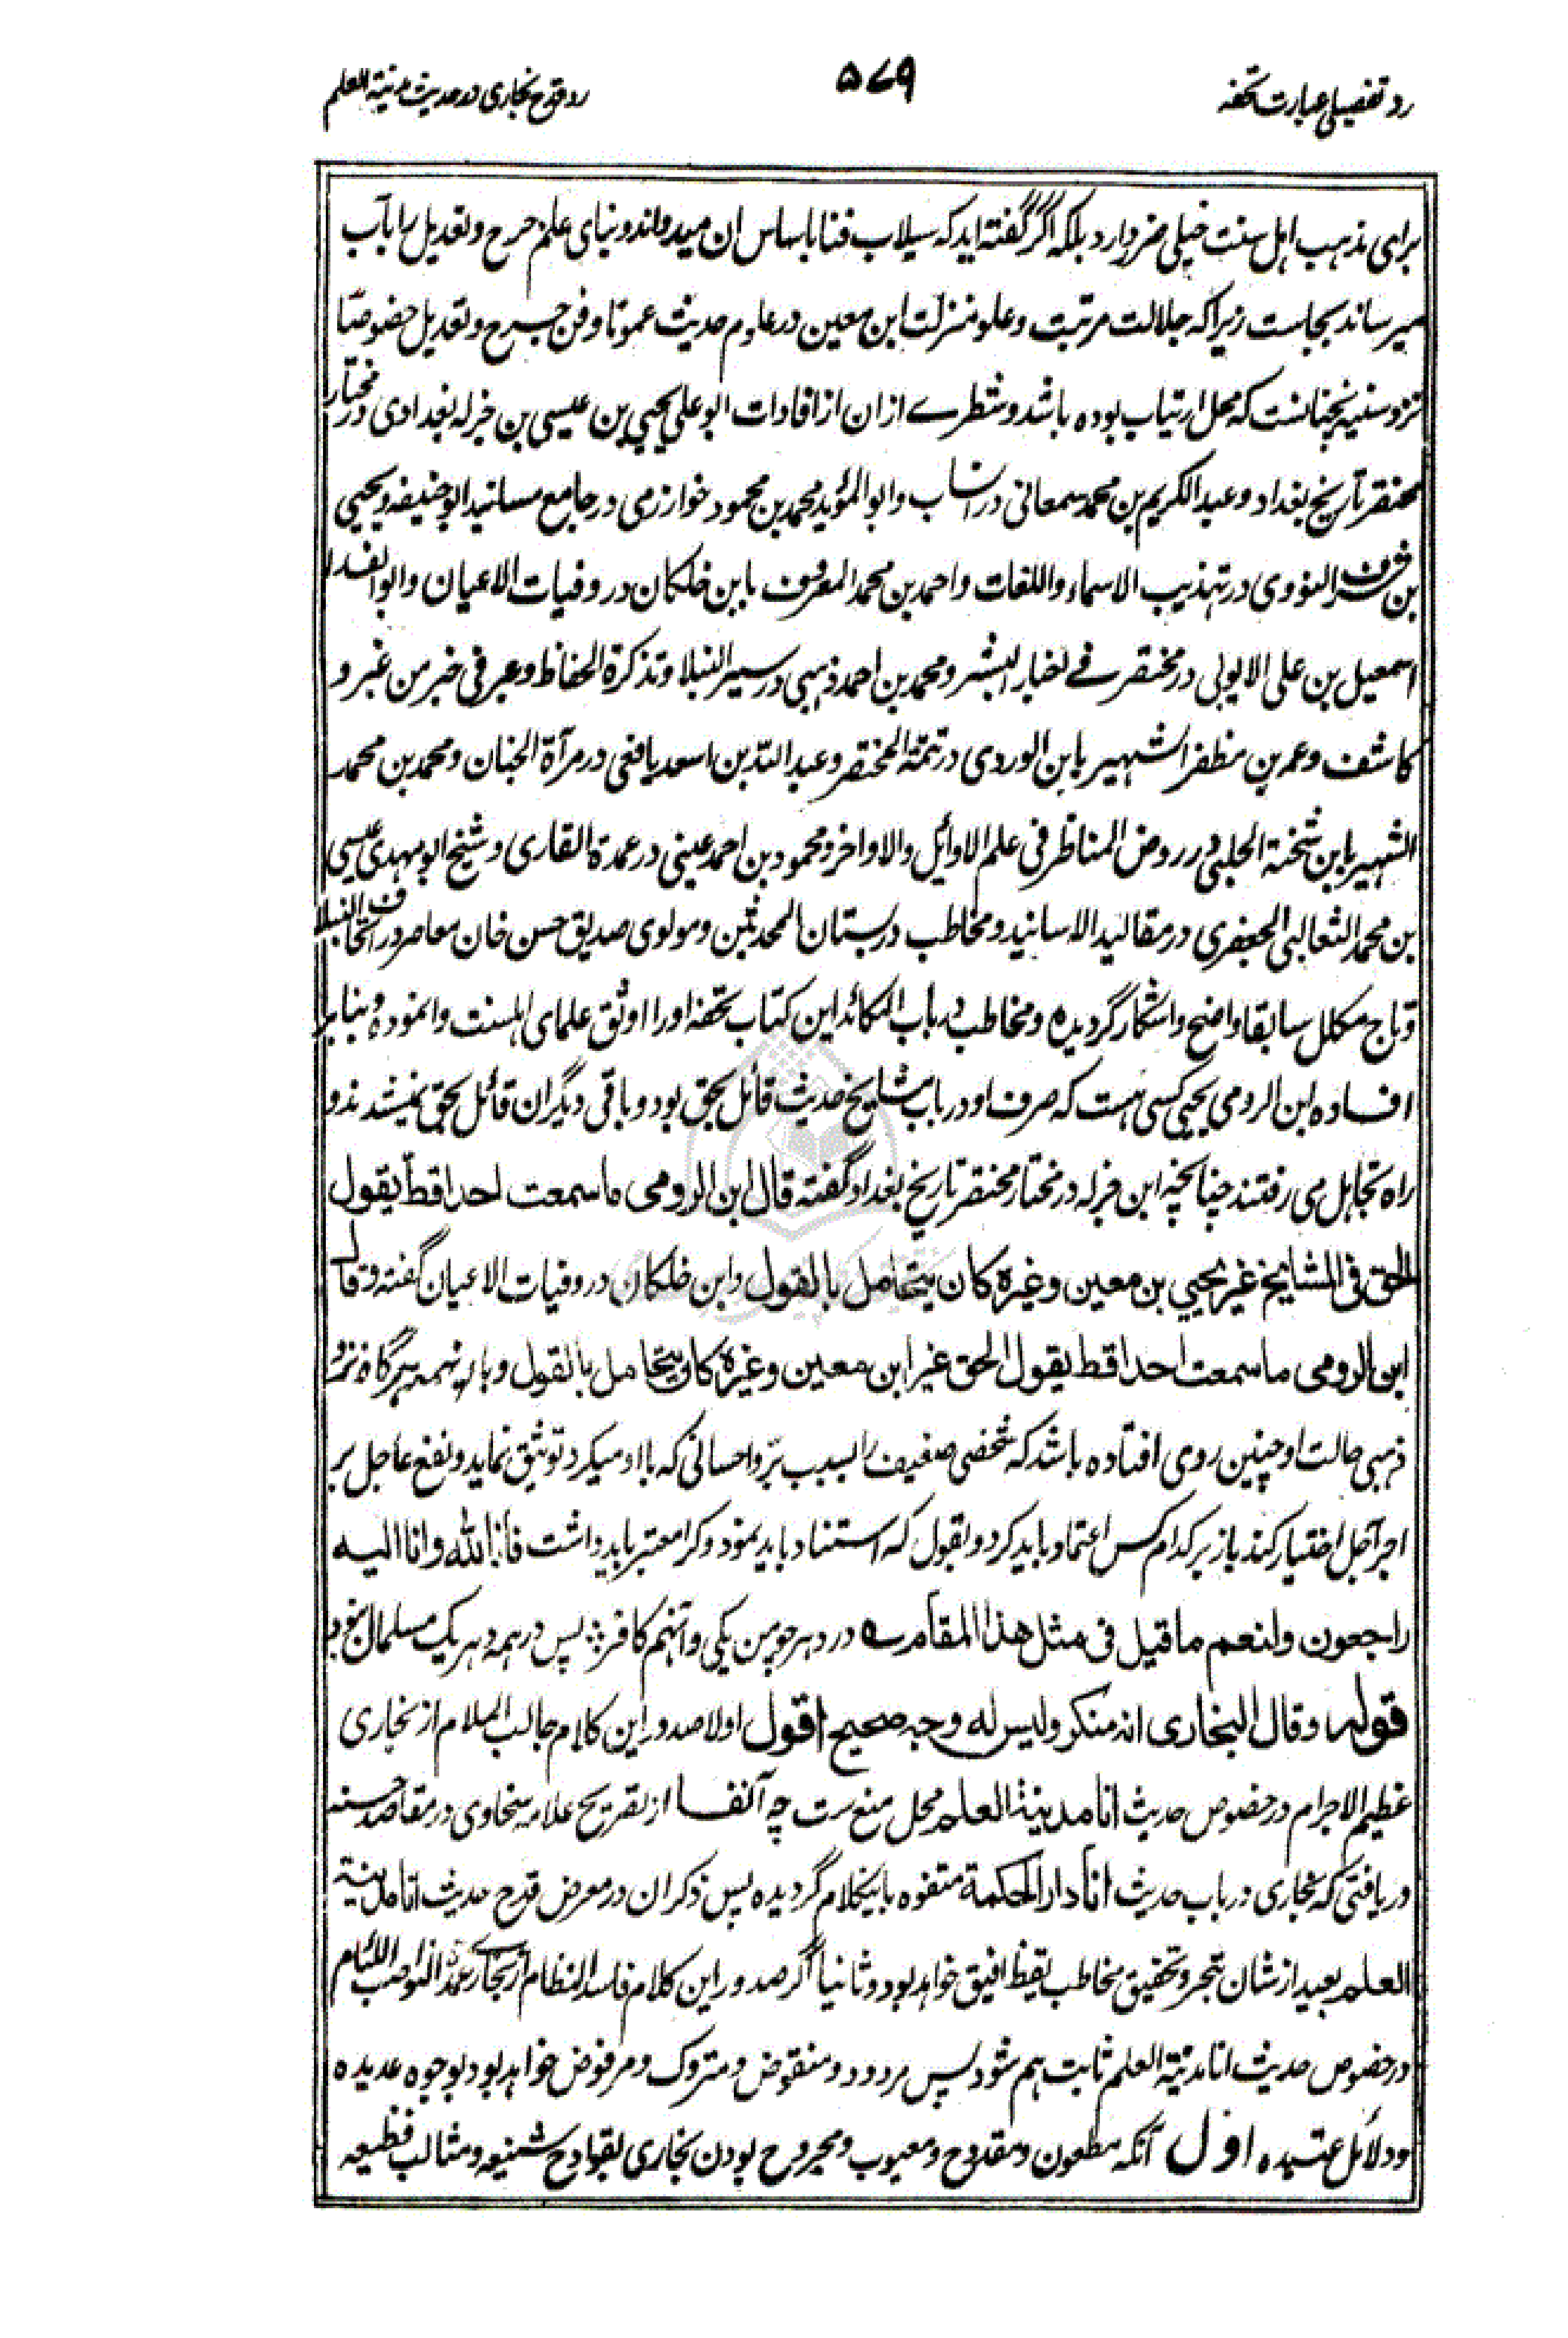 رد تفصیلی عبارت تحفه
۵۷۹
رد قدح بخاری در حدیث مدینة العلم
برای مذهب اهل سنت خیلی ضرر دارد بلکه اگر گفته اید که سیلاب فنا باساس ان میدواند و بنای علم جرح و تعدیل را بآب
میرساند بجاست زیرا که جلالت مرتبت و علو منزلت ابن معین در علوم حدیث عموما و فن جرح و تعدیل خصوصا
نزد سنیه نچنانست که محل ارتیاب بوده باشد و شطرے از ان از افادات ابو علی یحیی بن عیسی بن جزله بغدادی در مختار
مختصر تاریخ بغداد و عبد الکریم بن محمد سمعانی در انساب و ابو المؤید محمد بن محمود خوارزمی در جامع مسانید ابو حنیفه و یحیی
بن شرف النووی در تهذیب الاسماء واللغات و احمد بن محمد المعروف بابن خلکان در وفیات الاعیان و ابو الفدا
اسمعیل بن علی الایوبی در مختصر فے اخبار البشر و محمد بن احمد ذهبی در سیر النبلا و تذکرة الحفاظ و عبر فی خبر من غبر و
کاشف و عمر بن مظفر الشهیر بابن الوردی در تتمة المختصر و عبد الله بن اسعد یافعی در مرآة الجنان و محمد بن محمد
الشهیر بابن شحنة الحلبی در روض المناظر فی علم الاوایل والاواخر و محمود بن احمد عینی در عمدة القاری و شیخ ابو مهدی عیسی
بن محمد الثعالبی الجعفری در مقالید الاسانید و مخاطب در بستان المحدثین و مولوی صدیق حسن خان معاصر در اتحاف النبلا
و تاج مکلل سابقا واضح و اشکار گردیده و مخاطب در باب المکائد این کتاب تحفه او را اوثق علمای اهلسنت وانموده و بنابر
افاده ابن الرومی یحیی کسی هست که صرف او در باب مشایخ حدیث قائل بحق بود و باقی دیگران قائل بحق نمیشدند و
راه تجاهل می رفتند چنانچه ابن جزله در مختار مختصر تاریخ بغداد گفته قال ابن الرومی ما سمعت احدا قط یقول
الحق فی المشایخ غیر یحیی بن معین وغیره کان یتحامل بالقول و ابن خلکان در وفیات الاعیان گفته وقال
ابن الرومی ما سمعت احدا قط یقول الحق غیر ابن معین وغیره کان یتحامل بالقول و باینهمه هرگاه نزد
ذهبی حالت او چنین روی افتاده باشد که شخصی ضعیف را بسبب برّ و احسانی که باو میکرد توثیق نماید و نفع عاجل بر
اجر آجل اختیار کند باز بر کدام کس اعتماد باید کرد و بقول که استناد باید نمود و کرا معتبر باید داشت فانا لله وانا الیه
راجعون ولنعم ما قیل فی مثل هذا المقام ے در دهر چو من یکی و آنهم کافر ؛ پس در همه دهر یک مسلمان نبود
قوله وقال البخاری انه منکر ولیس له وجه صحیح اقول اولا صدور این کلام جالب الملام از بخاری
عظیم الاجرام در خصوص حدیث انا مدینة العلم محل منع ست چه آنفا از تصریح علامه سخاوی در مقاصد حسنه
دریافتی که بخاری در باب حدیث انا دار الحکمة متفوه باینکلام گردیده پس ذکر ان در معرض قدح حدیث انا مدینة
العلم بعید از شان تبحر و تحقیق مخاطب یقظ افیق خواهد بود و ثانیا اگر صدور این کلام فاسد النظام از بخاری عمدة النواصب اللئام
در خصوص حدیث انا مدینة العلم ثابت هم شود پس مردود و منقوض و متروک و مرفوض خواهد بود بوجوه عدیده
و دلائل عتیده اول آنکه مطعون و مقدوح و معیوب و مجروح بودن بخاری بقوادح شنیعه و مثالب فظیعه